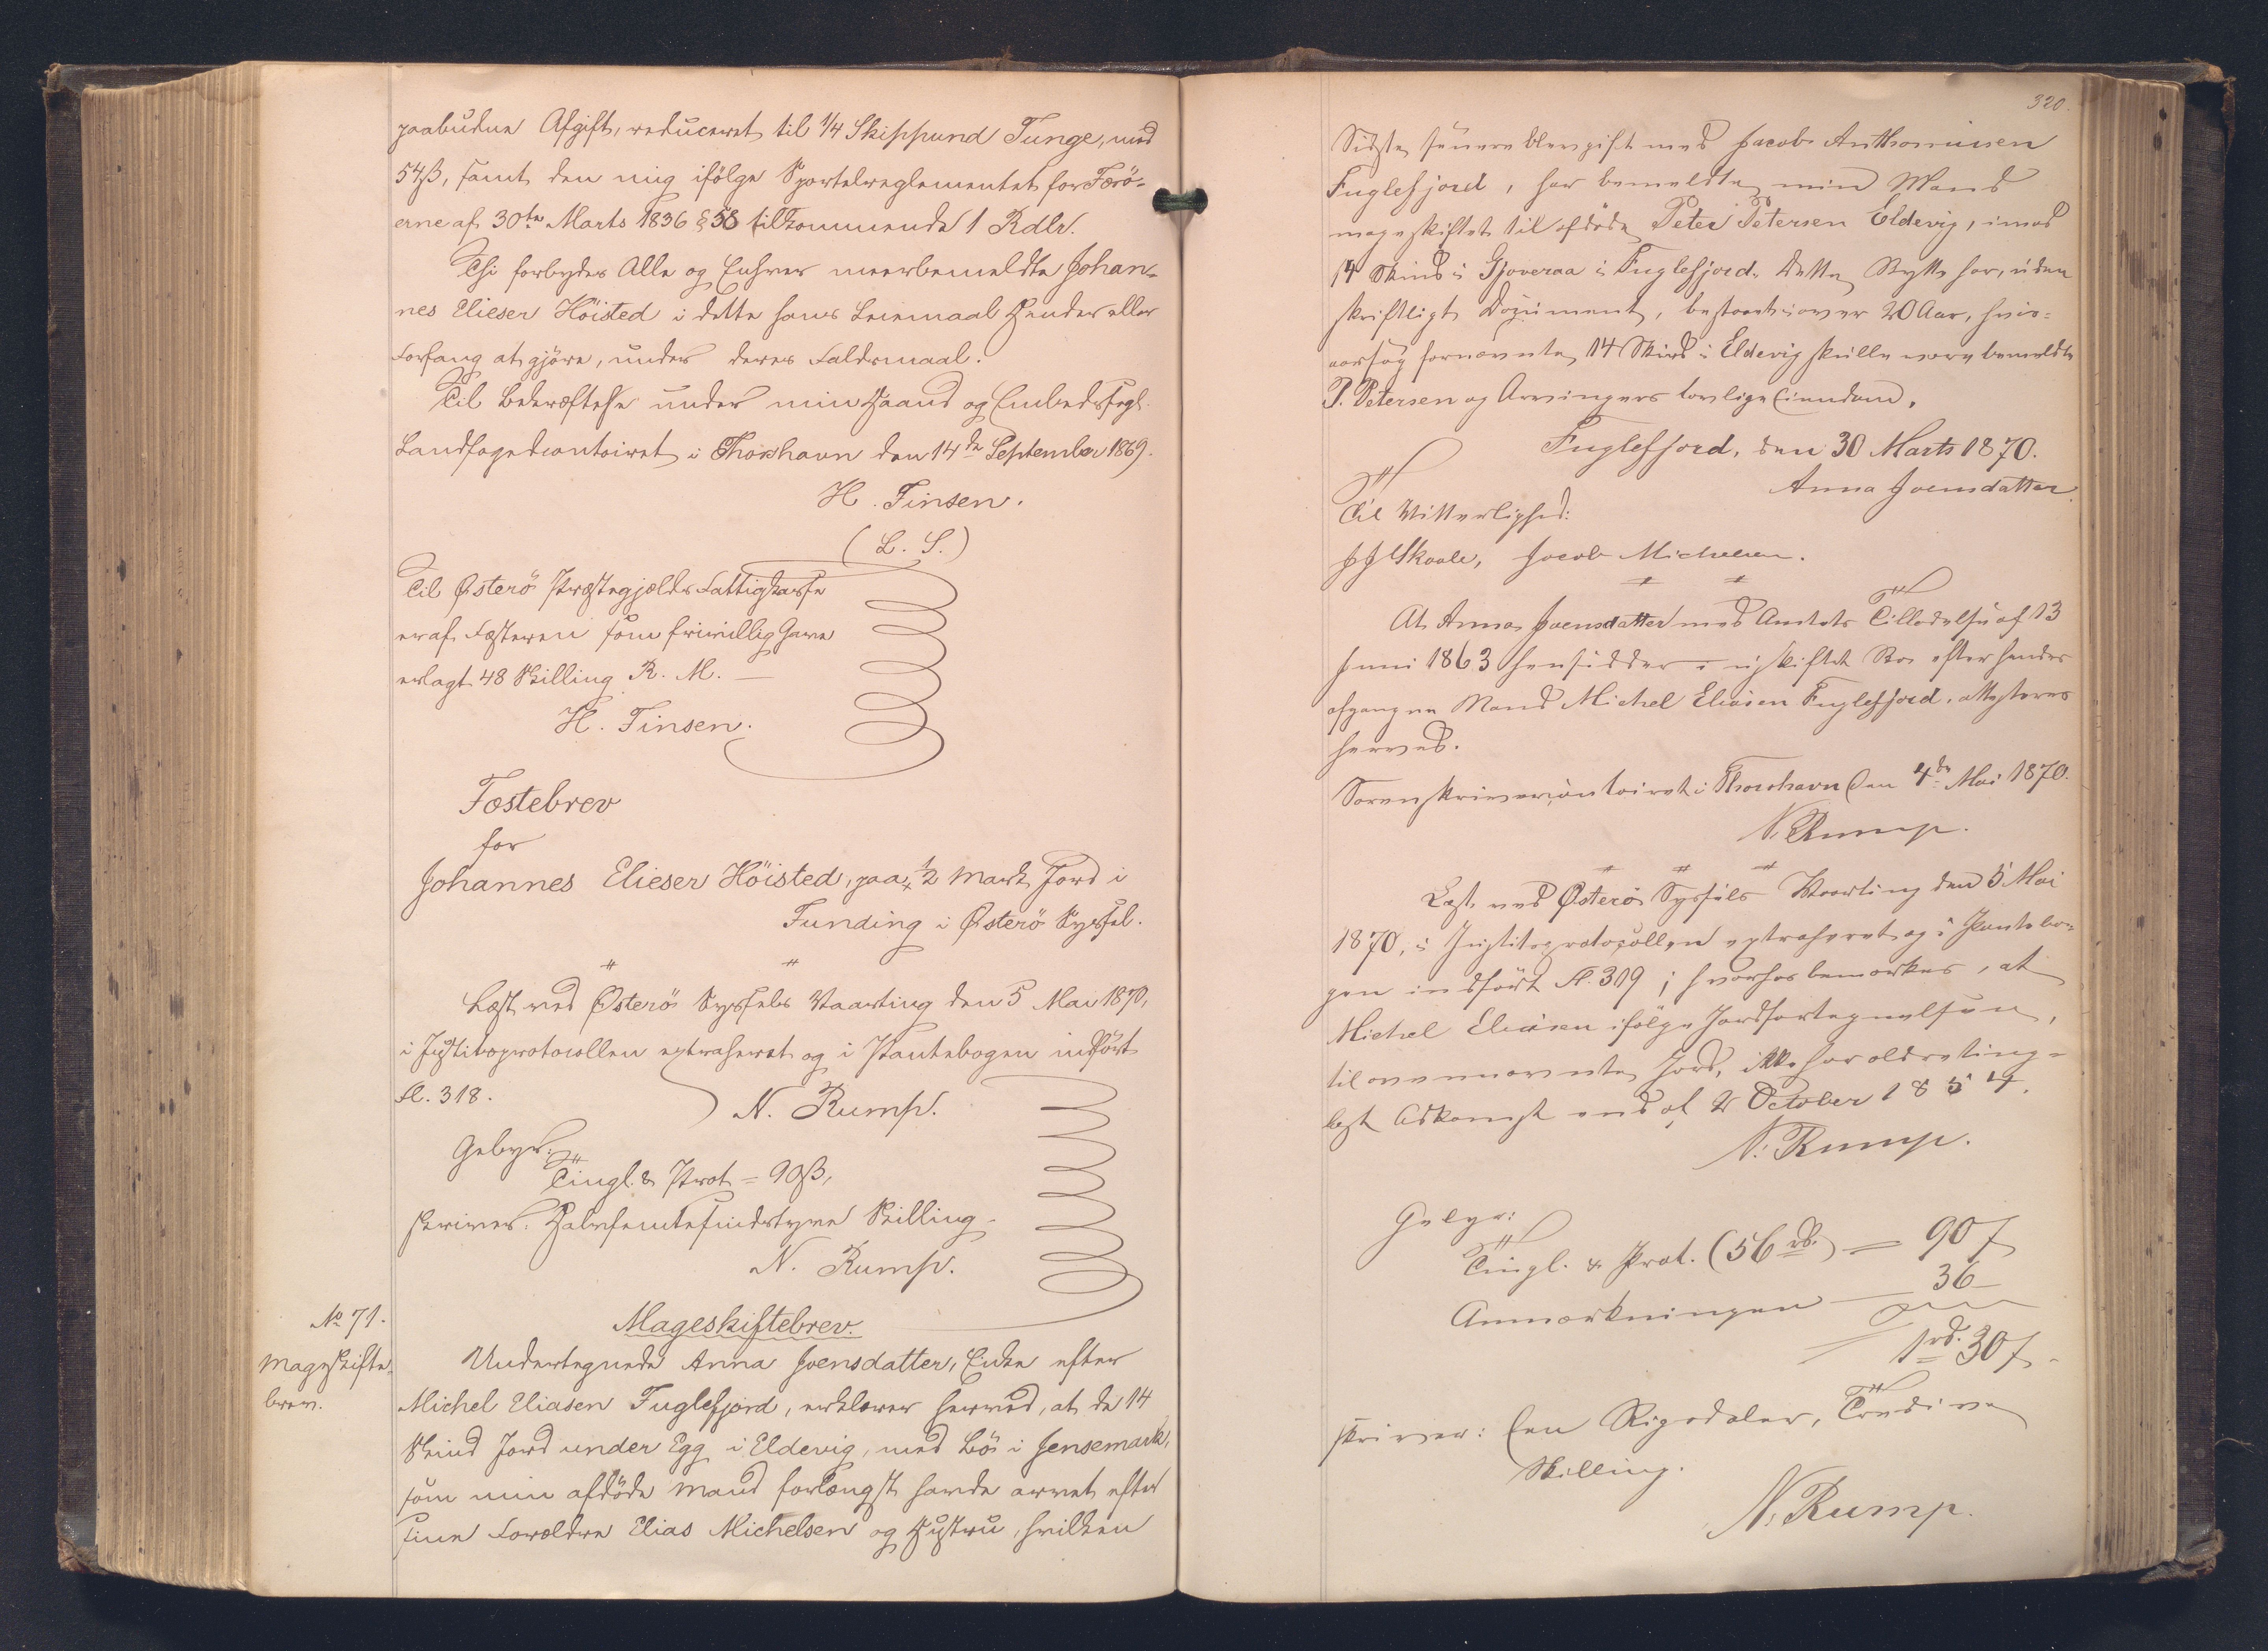 paabudne Afgift, reduceret til 1/4 Skippund Tunge, med
54ß, samt den mig ifölge Sportelreglementet for Færö-
erne af 30te Marts 1836 § 58 tilkommende 1 Rdlr.
Thi forbydes Alle og Enhver meerbemeldte Johan-
nes Elieser Höisted i dette hans Leiemaal Hinder eller
Forfang at gjöre, under deres Faldsmaal.
Til Bekræftelse under min Haand og Embedssegl.
Landfogedcontoiret i Thorshavn den 14de September 1869.
H. Finsen.
(L. S.)
Til Østerö Præstegjælds Fattigkasse
er af Fæsteren som frivillig Gave
erlagt 48 Skilling R. M. —
H. Finsen.
Fæstebrev
for
Johannes Elieser Höisted, paa 1/2 Mark Jord i
Funding i Østerö Syssel.
Læst ved Østerö Syssels Vaarting den 5 Mai 1870,
i Justitsprotocollen extraheret og i Pantebogen indfört
fl. 318.
N. Rump.
Gebyr:
Tingl. & Prot = 90ß,
skriver: Halvfemtesindstyve Skilling.
N. Rump.
No 71.
Mageskifte-
brev.
Mageskiftebrev.
Undertegnede Anna Joensdatter, Enke efter
Michel Eliasen Fuglefjord, erklærer herved, at de 14
Skind Jord under Egg i Eldevig, med Bö i Jensemark,
som min afdöde Mand forlængst havde arvet efter
sine Forældre Elias Michelsen og Hustru, hvilken
320.
Sidste senere blev gift med Jacob Anthoniusen
Fuglefjord, har bemeldte min Mand
mageskiftet til afdöde Peter Petersen Eldevig, imod
14 Skind i Gjoveraa i Fuglefjord. Dette Bytte har, uden
skriftligt Document, bestaaet i over 20 Aar, hvis-
aarsag fornævnte 14 Skind i Eldevig skulle være bemeldte
P. Petersen og Arvingers lovlige Eiendom.
Fuglefjord, den 30 Marts 1870.
Anna Joensdatter.
Til Vitterlighed:
J J Skaale, Jacob Michelsen.
At Anna Joensdatter med Amtets Tilladelse af 13
Juni 1863 hensidder i uskiftet Bo efter hendes
afgangne Mand Michel Eliasen Fuglefjord, attesteres
herved.
Sorenskrivercontoiret i Thorshavn den 4de Mai 1870.
N. Rump.
Læst ved Østerö Syssels Vaarting den 5 Mai
1870, i Justitsprotocollen extraheret og i Pantebo-
gen indfört fl. 319; hvorhos bemærkes, at
Michel Eliasen ifölge Jordfortegnelsen,
til ovennævnte Jord, ikke har ældre ting-
læst Adkomst end af 2 October 1854.
N. Rump.
Gebyr:
Tingl. & Prot. (56 rd.) — 90ß
Anmærkningen — 36 —
1 rd. 30ß.
skriver: Een Rigsdaler, Tredive
Skilling.
N. Rump.